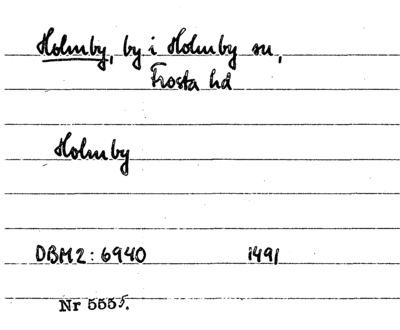 Holmby, by i Holmby sn,
Frosta hd
Holmby
DBM2: 6940 1491
Nr 5555.